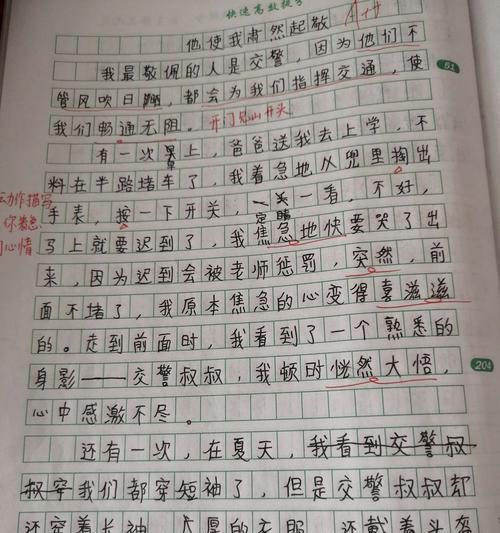 快速高效提分
A++
他使我肃然起敬
我最敬佩的人是交警，因为他们不
管风吹日晒，都会为我们指挥交通，使
51
我们畅通无阻。开门见山开头
有一次早上，爸爸送我去上学，不
料在半路堵车了，我着急地从兜里掏出
动作描写
手表，按一下开关，一看，不好，
定睛
你着急
心情
马上就要迟到了，我焦急地快要哭了出
来，因为迟到会被老师惩罚，突然，前
面不堵了，我原本焦急的心变得喜滋滋
的。走到前面时，我看到了一个熟悉的
身影——交警叔叔，我顿时恍然大悟，
204
心中感激不尽。
还有一次，在夏天，我看到交警叔
叔穿我们都穿短袖了，但是交警叔叔却
还穿着长袖、厚的衣服，还戴着头盔